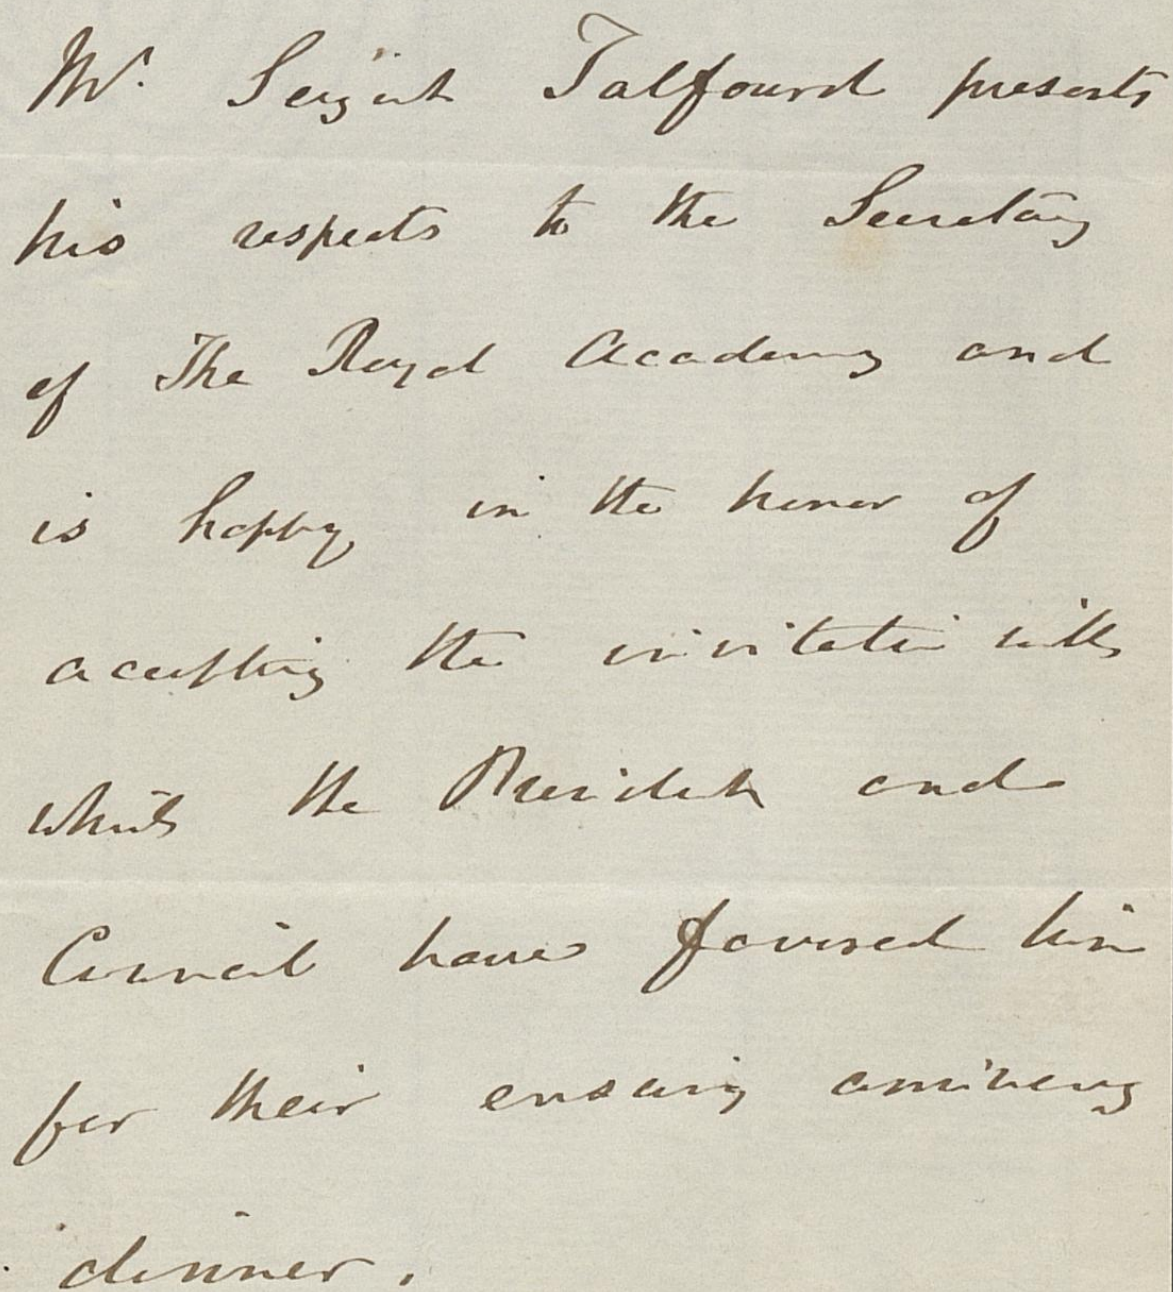 Mr. Serjeant Talfourd presents
his respects to the Secretary
of The Royal Academy and
is happy in the honor of
accepting the invitation with
which the President and
Council have favored him
for their ensuing anniversary
dinner.